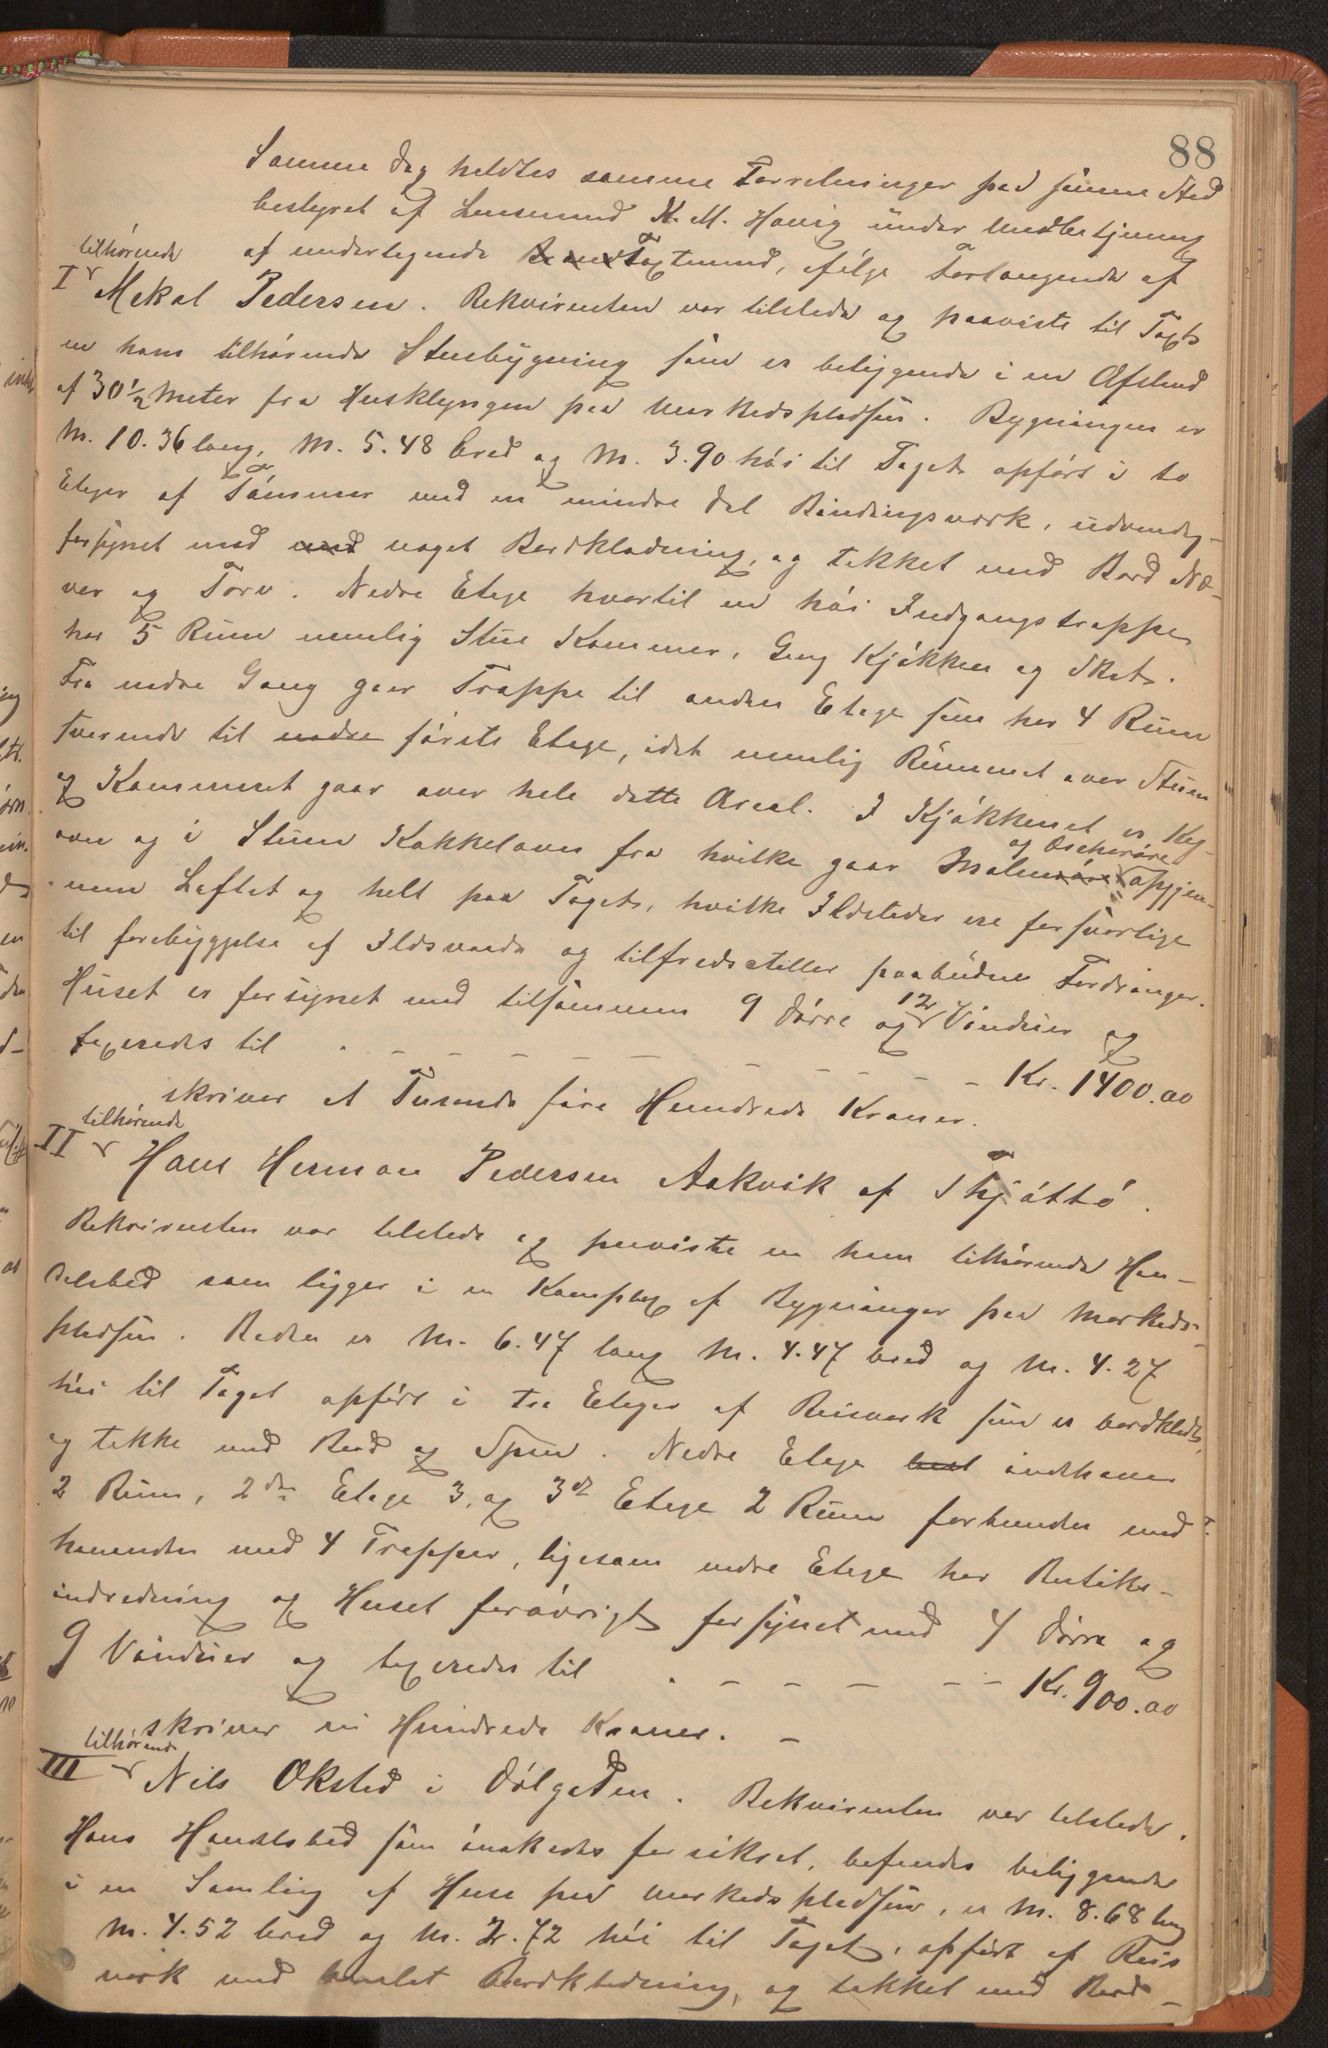 88
Samme Dag holdtes samme Forretninger paa samme Sted
bestyret af Lensmand K. M. Havig under Medbetjening
af undertegnede Taxtmænd, ifølge Forlangende af
tilhørende
I Mekal Pedersen. Rekvirenten var tilstede og paaviste til Taxt
en ham tilhørende Stuebygning som er beliggende i en Afstand
af 30 1/2 Meter fra Husklyngen paa Markedspladsen. Bygningen er
M. 10.36 lang, M. 5.48 bred og M. 3.90 høi til Taget opført i to
Etager af Tømmer med en mindre Del Bindingsværk, udvendig
forsynet med med noget Bordklædning, og tekket med Bord Næ-
ver og Torv. Nedre Etage hvortil en høi Indgangstrappe
har 5 Rum nemlig Stue Kammer, Gang Kjøkken og Skot.
Fra nedre Gang gaar Trappe til anden Etage som har 4 Rum
svarende til nedre første Etage, idet nemlig Rummet over Stuen
og Kammeret gaar over hele dette Areal. I Kjøkkenet er Kog-
ovn og i Stuen Kakkelovn fra hvilke gaar og Æskerøre opgjen-
nem Loftet og helt paa Taget, hvilke Ildsteder ere forsvarlige
til forebyggelse af Ildsvaade og tilfredsstiller paabudne Fordringer.
Huset er forsynet med tilsammen 9 Dørre og 12 Vinduer og
taxeredes til . - - - - - - - - - - Kr. 1400.00
skriver et Tusende fire Hundrede Kroner.
tilhørende
II Hans Herman Pedersen Aakvik af Thjøttø.
Rekvirenten var tilstede og paaviste en ham tilhørende Han-
delsbod som ligger i en Komplex af Bygninger paa Markeds-
pladsen. Boden er M. 6.47 lang M. 4.47 bred og M. 4.27
høi til Taget opført i tre Etager af Reisverk som er bordklædt,
og tekke med Bord og Spon. Nedre Etage indehaver
2 Rum, 2den Etage 3, og 3de Etage 2 Rum forbunden med
hverandre med 4 Trapper, ligesom nedre Etage har Butiks-
indredning og Huset forøvrigt forsynet med 4 Dørre og
9 Vinduer og taxeredes til . - - - - - - Kr. 900.00
skriver ni Hundrede Kroner. -
tilhørende
III Nils Oksted i Dølgaden. Rekvirenten var tilstede.
Hans Handelsbod som ønskedes forsikret, befandes beliggende
i en Samling af Huse paa Markedspladsen, er M. 8.68 lang
M. 4.52 bred og M. 2.72 høi til Taget, opført af Reis
værk med Bordklædning, og tekket med Bord-